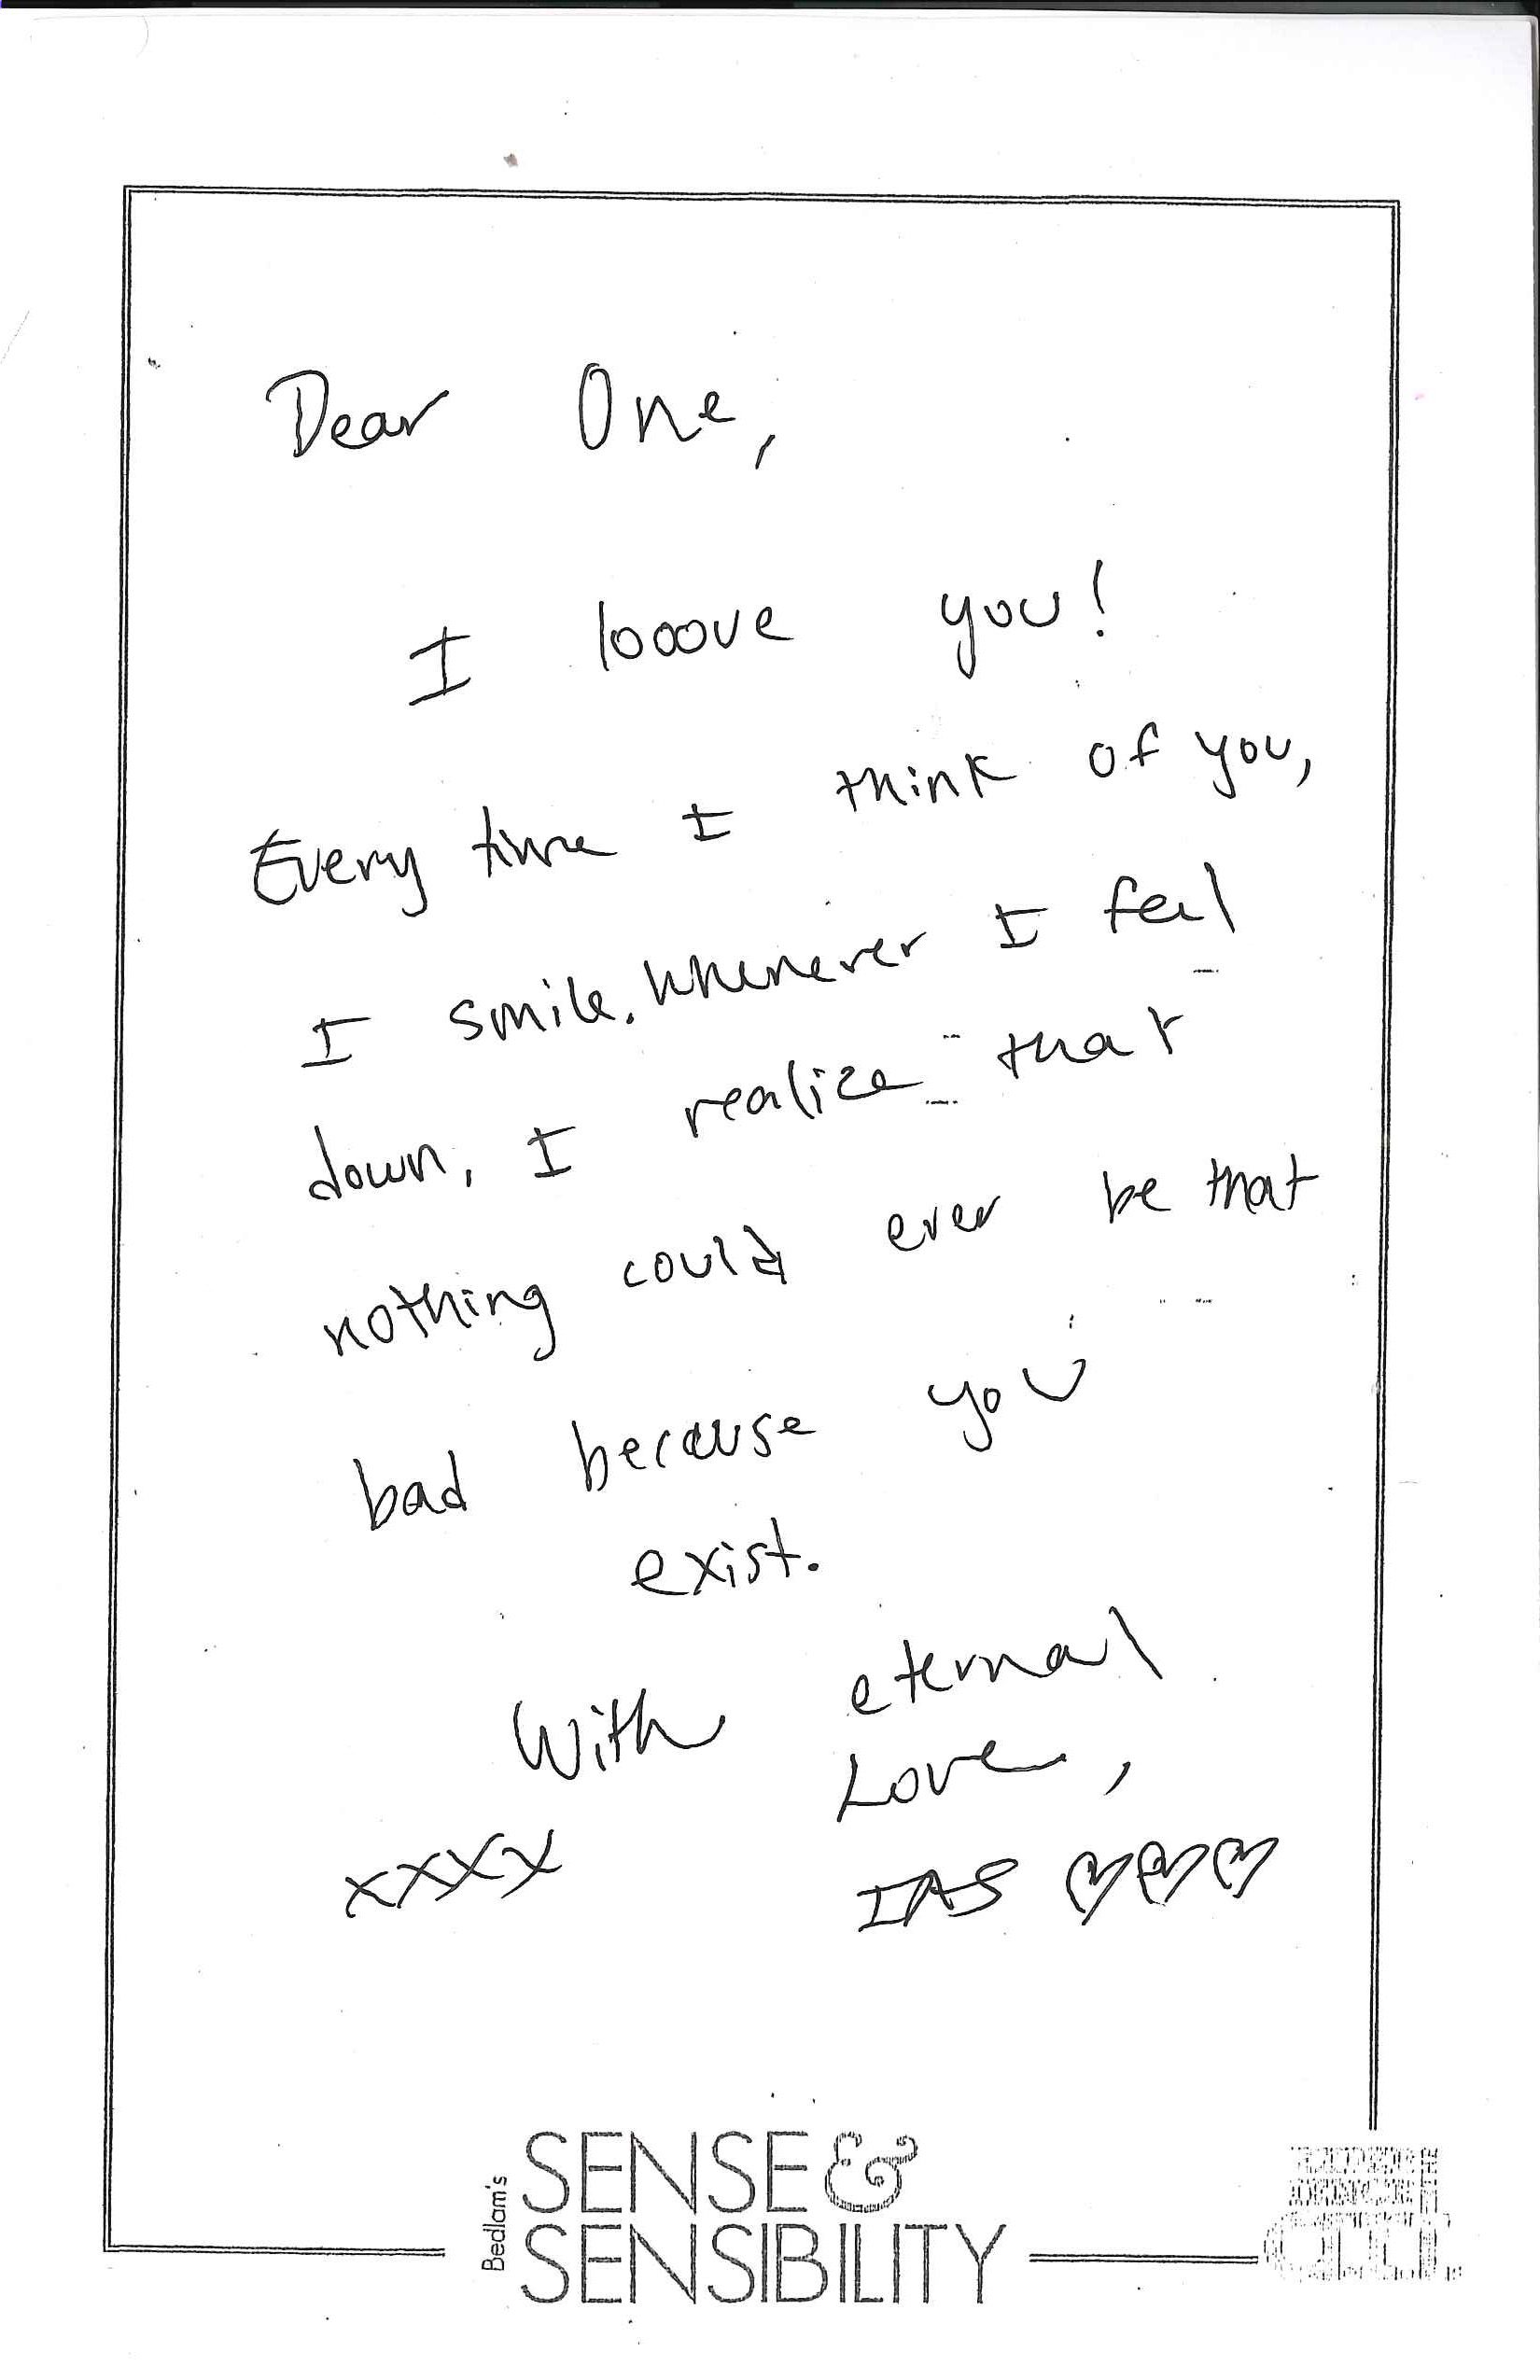 Dear One,
I looove you!
Every time I think of you,
I smile. Whenever I feel
down, I realize that
nothing could ever be that
bad because you
exist.
With eternal
Love,
xxxx IAS ♡♡♡
Bedlam's
SENSE &
SENSIBILITY